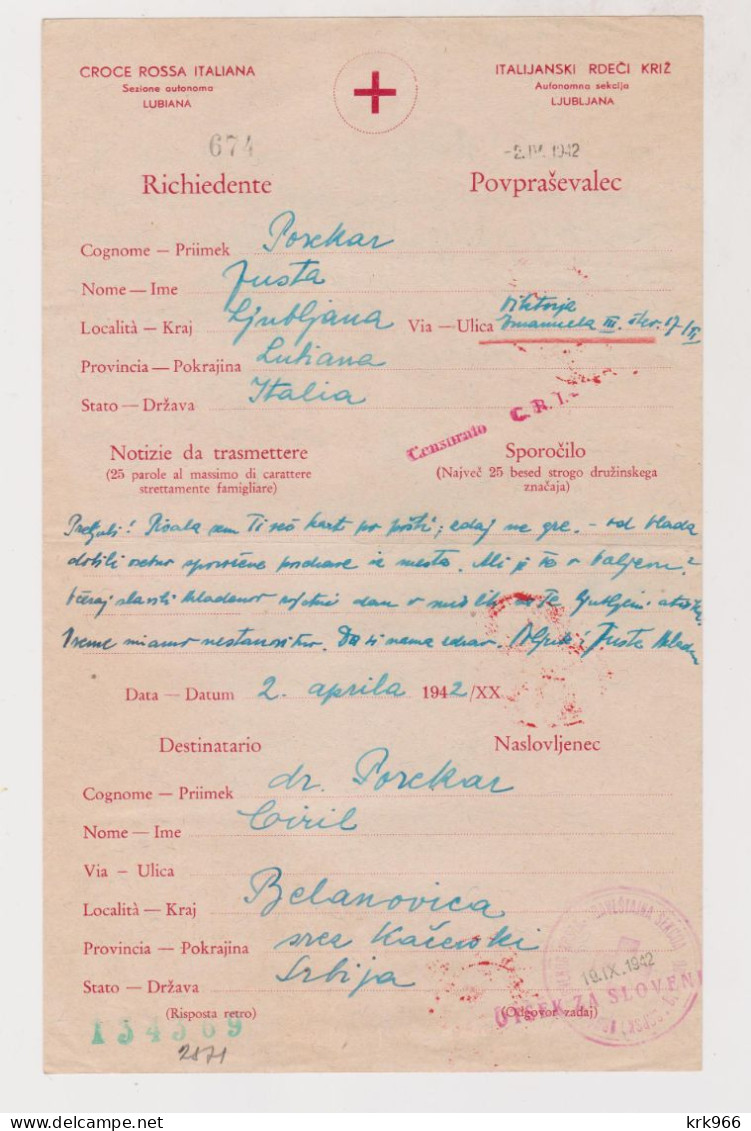 CROCE ROSSA ITALIANA
Sezione autonoma
LUBIANA
ITALIJANSKI RDEČI KRIŽ
Avtonomna sekcija
LJUBLJANA
674
-2.IV.1942
Richiedente
Povpraševalec
Cognome — Priimek Porekar
Nome — Ime Justa
Località — Kraj Ljubljana Via — Ulica Viktorja
Emanuela III.
Provincia — Pokrajina Lubiana
Stato — Država Italia
Censurato C. R. I.
Notizie da trasmettere
(25 parole al massimo di carattere
strettamente famigliare)
Sporočilo
(Največ 25 besed strogo družinskega
značaja)
Predragi! Pisala sem Ti več kart po pošti; zdaj ne gre. - od
dobili sporočene pozdrave iz mesta. Ali je to v Valjevu?
Včeraj slavili
Vreme nestanovitno. Justa
Data — Datum 2. aprila 1942/XX
Destinatario
Naslovljenec
Cognome — Priimek dr. Porekar
Nome — Ime Ciril
Via – Ulica
Località — Kraj Belanovica
Provincia — Pokrajina srez Kačerski
Stato — Država Srbija
(Risposta retro)
(Odgovor zadaj)
19.IX.1942
OTSEK ZA SLOVENI
134369
2871
krk966